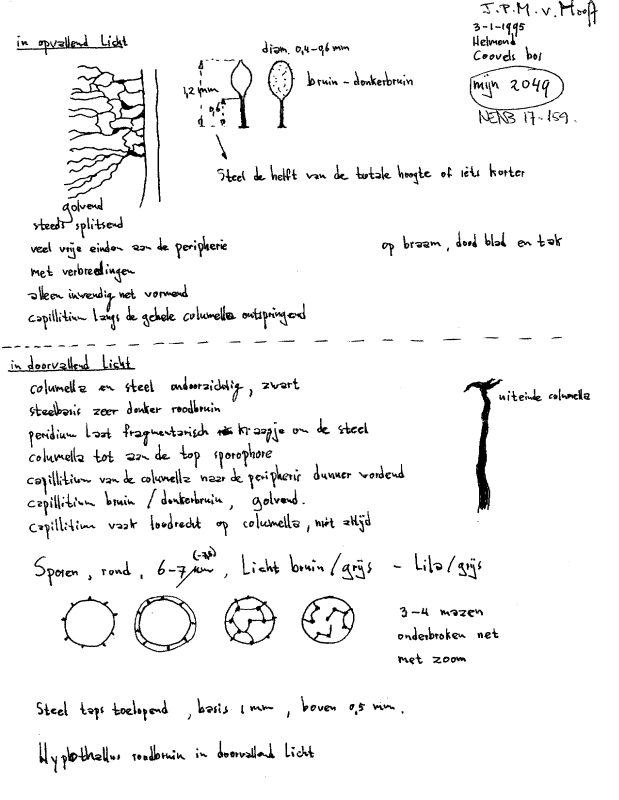 J.P.M. v. Hooff
3-1-1995
Helmond
Coovels bos
mijn 2049
NENB 17-159.
in opvallend Licht
diam. 0,4-0,6 mm
1,2 mm
0,6
bruin - donkerbruin
Steel de helft van de totale hoogte of iets korter
golvend
steeds splitsend
veel vrije einden aan de peripherie
op braam, dood blad en tak
met verbredingen
alleen inwendig net vormend
capillitium langs de gehele columella ontspringend
in doorvallend Licht
columella en steel ondoorzichtig, zwart
steelbasis zeer donker roodbruin
uiteinde columella
peridium laat fragmentarisch kraagje om de steel
columella tot aan de top sporophore
capillitium van de columella naar de peripherie dunner wordend
capillitium bruin / donkerbruin, golvend.
capillitium vaak loodrecht op columella, niet altijd
Sporen, rond, 6-7 µm, Licht bruin/grijs - Lila/grijs
3-4 mazen
onderbroken net
met zoom
Steel taps toelopend, basis 1 mm, boven 0,5 mm.
Hypothallus roodbruin in doorvallend Licht